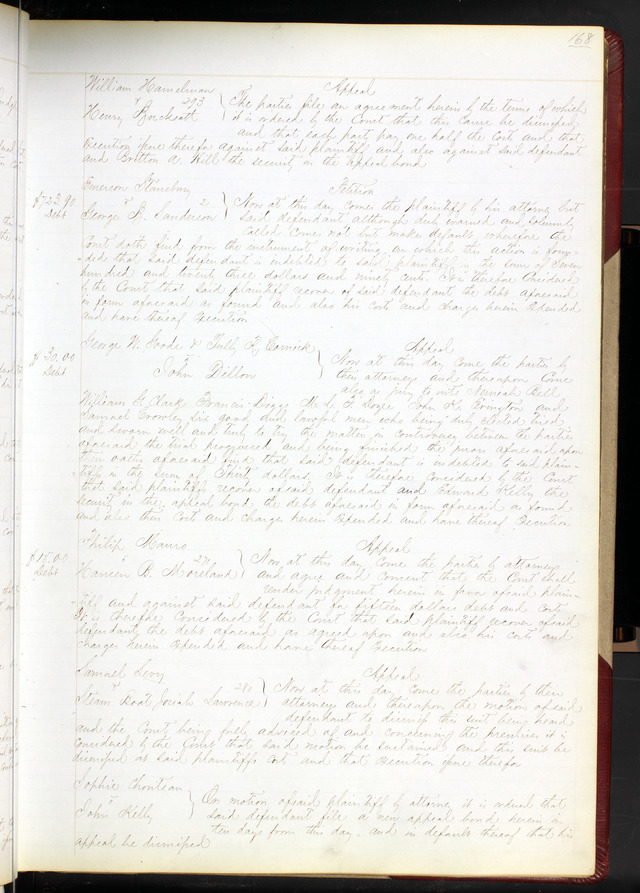 168
William Hamelman Appeal
vs 293 The parties file an agreement herein by the terms of which
Henry Borcksatt it is ordered by the Court that this cause be dismissed
and that each party pay one half the Costs and that
execution issue therefor against said plaintiff and also against said defendant
and Britton A. Hill the security in the appeal bond
Emerson Petition
$723.90 vs 2 Now at this day comes the plaintiff by his attorney but
Debt George R. Sanderson said defendant although duly warned and solemnly
called come not but make default wherefore the
Court doth find from the instrument of writing on which the action is foun-
ded that said defendant is indebted to said plaintiff in the sum of seven
hundred and twenty three dollars and ninety cents It is therefore Considered
by the Court that said plaintiff recover of said defendant the debt aforesaid
in form aforesaid as found and also his costs and charges herein expended
and have thereof execution
George W. Goode & Tully R. Cornick Appeal
$30.00 vs Now at this day come the parties by
Debt John Dillon their attorneys and thereupon Come
also a jury to wit Bell
William Francis Diggs John and
Samuel Crowley six good and lawful men who being duly elected tried
and sworn well and truly to try the matter in controversy between the parties
aforesaid the trial progressed and being finished the jurors aforesaid upon
their oaths aforesaid find that said defendant is indebted to said plain-
tiffs in the sum of Thirty dollars It is therefore considered by the Court
that said plaintiffs recover of said defendant and Edward Kelly the
security in the appeal bond the debt aforesaid in form aforesaid as found
and also their Costs and charges herein expended and have thereof execution
Philip Mauro Appeal
$15.00 vs 271 Now at this day Come the parties by attorneys
Debt B. Moreland and agree and Consent that the Court shall
render judgment herein in favor of said plain-
tiff and against said defendant for fifteen dollars debt and Costs
It is therefore Considered by the Court that said plaintiff recover of said
defendant the debt aforesaid as agreed upon and also his costs and
charges herein expended and have thereof Execution
Samuel Levy Appeal
vs Now at this day come the parties by their
Steam Boat Josiah Lawrence attorneys and thereupon the motion of said
defendant to dismiss this suit being heard
and the Court being fully advised of and concerning the premises it is
Considered by the Court that said motion be sustained and this suit be
dismissed at said plaintiff's Cost and that execution issue therefor
Sophie Chouteau
vs On motion of said plaintiff by attorney it is ordered that
John Kelly said defendant file a new appeal bond herein in
ten days from this day and in default thereof that his
appeal be dismissed